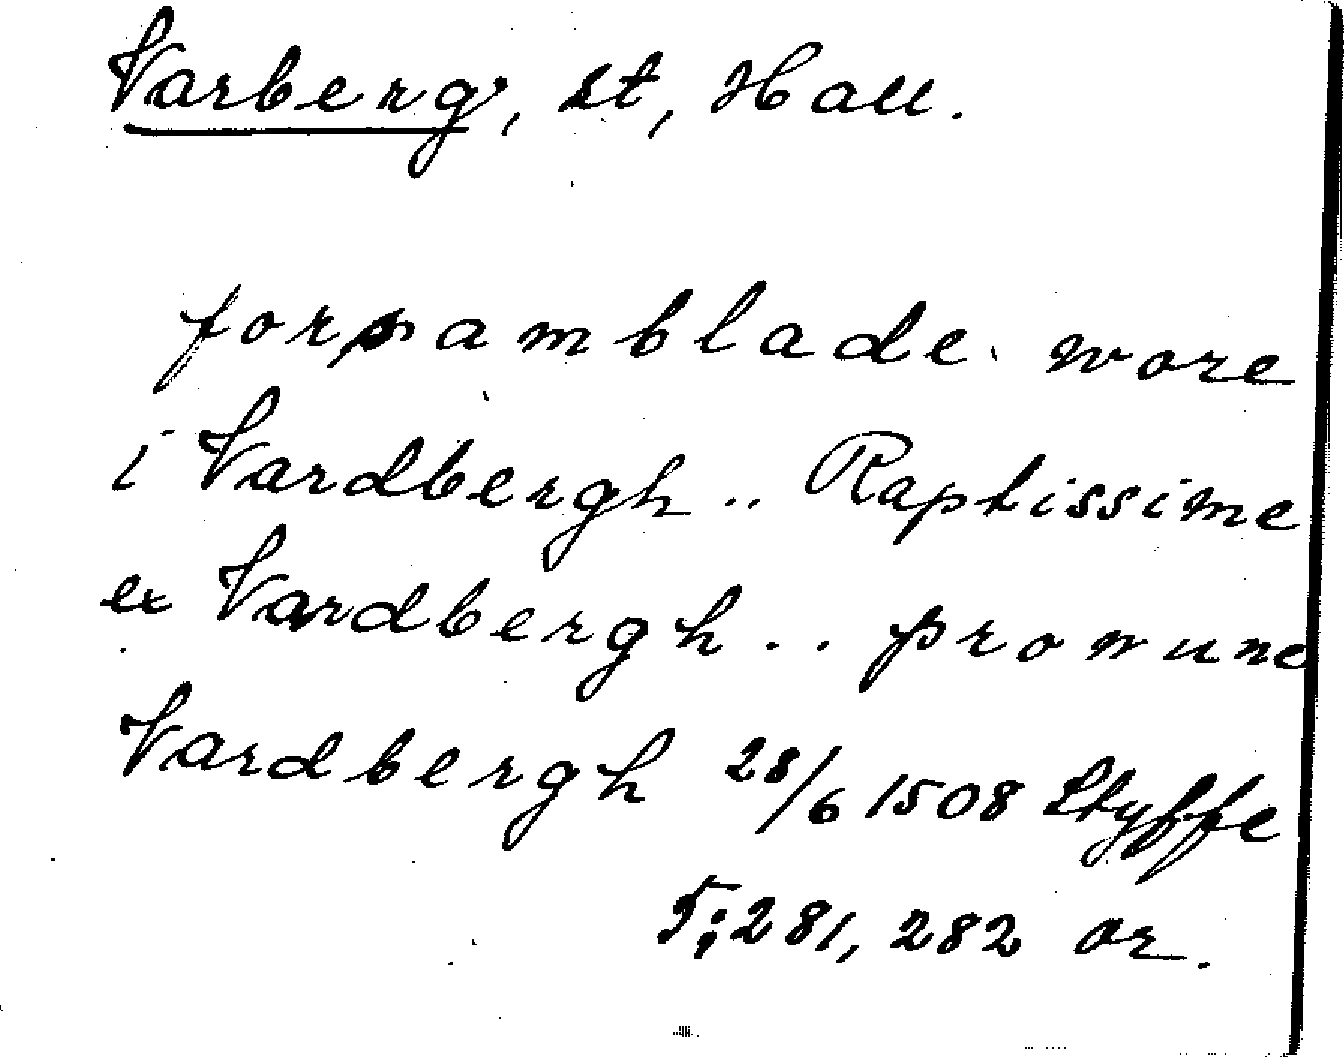 Varberg, st, Hall.
forsamblade wore
i Vardbergh .. Raptissime
ex Vardbergh .. pro nunc
Vardbergh 28/6 1508 Styffe
5:281, 282 or.